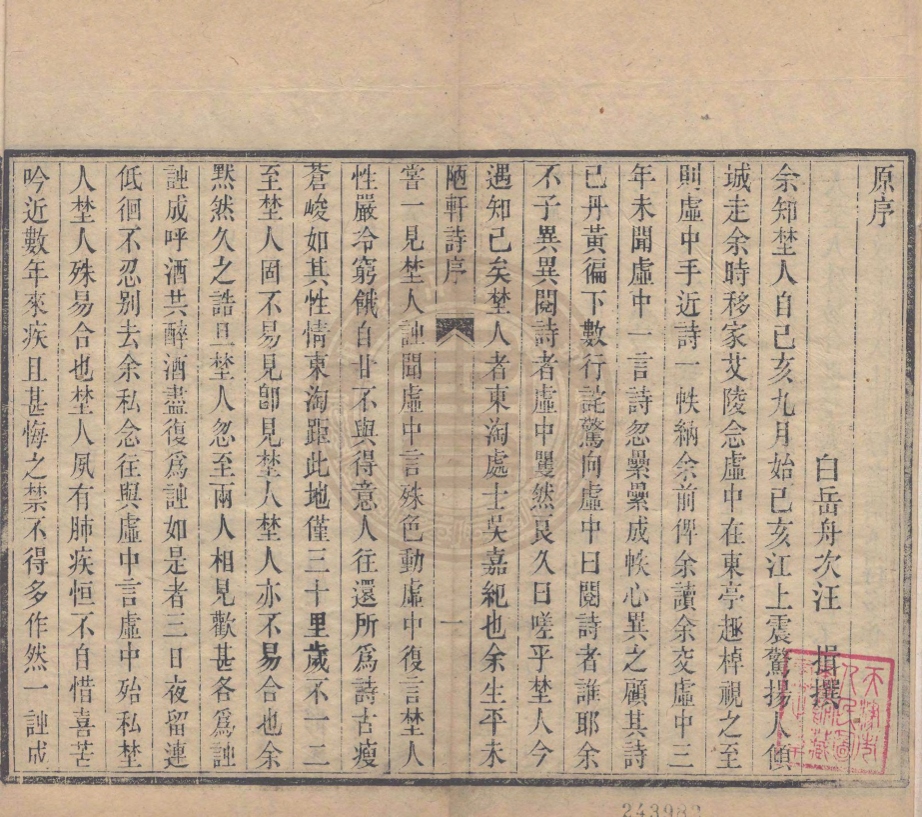 原序
白岳舟次汪　楫撰
余知埜人自己亥九月始己亥江上震驚揚人傾
城走余時移家艾陵念虛中在東亭趣棹視之至
則虛中手近詩一帙納余前俾余讀余交虛中三
年未聞虛中一言詩忽纍纍成帙心異之顧其詩
已丹黃徧下數行詫驚向虛中曰閱詩者誰耶余
不子異異閱詩者虛中矍然良久曰嗟乎埜人今
遇知己矣埜人者東淘處士吳嘉紀也余生平未
陋軒詩序　一
嘗一見埜人詩聞虛中言殊色動虛中復言埜人
性嚴冷窮餓自甘不與得意人往還所爲詩古瘦
蒼峻如其性情東淘距此地僅三十里歲不一二
至埜人固不易見卽見埜人埜人亦不易合也余
黙然久之詰旦埜人忽至兩人相見歡甚各爲詩
詩成呼酒共醉酒盡復爲詩如是者三日夜留連
低徊不忍別去余私念往與虛中言虛中殆私埜
人埜人殊易合也埜人夙有肺疾恒不自惜喜苦
吟近數年來疾且甚悔之禁不得多作然一詩成
243982